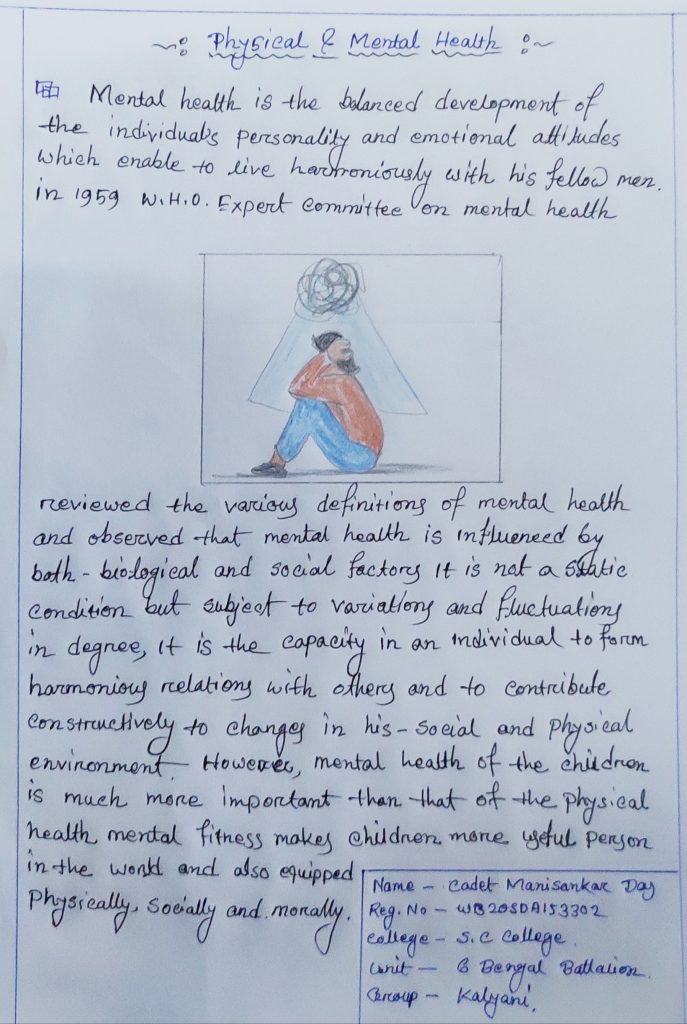 ~: Physical & Mental Health :~
Mental health is the balanced development of
the individual's personality and emotional attitudes
which enable to live harmoniously with his fellow men.
in 1959 W.H.O. Expert Committee on mental health
reviewed the various definitions of mental health
and observed that mental health is influenced by
both - biological and social factors It is not a static
condition but subject to variations and fluctuations
in degree, it is the capacity in an individual to form
harmonious relations with others and to contribute
constructively to changes in his - social and physical
environment. However, mental health of the children
is much more important than that of the physical
health mental fitness makes children more useful person
in the world and also equipped
Physically, Socially and morally.
Name - Cadet Manisankar Das
Reg. No - WB20SDA153302
College - S.C College.
Unit - 6 Bengal Battalion.
Group - Kalyani.